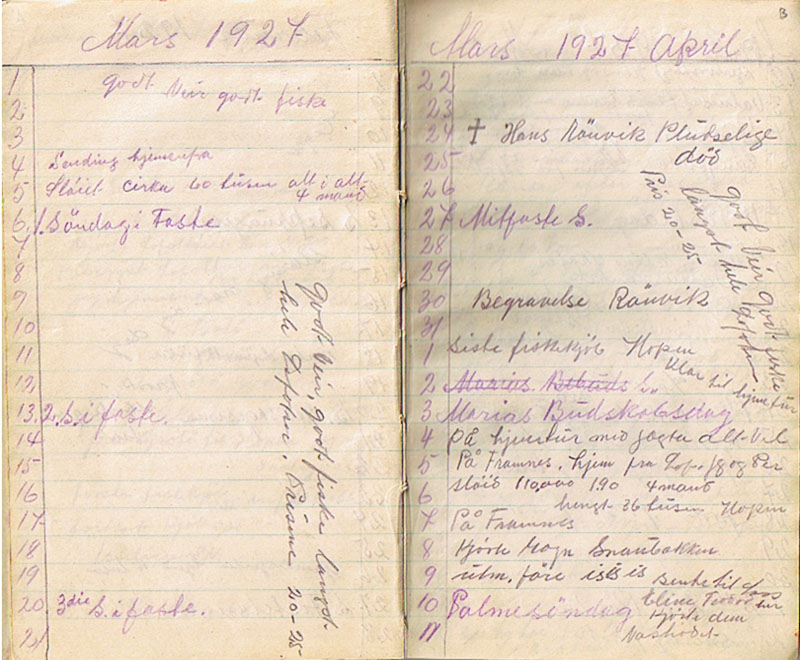 Mars 1927
1 godt Veir godt fiske
2
3
4 Sending hjemenfra
5 Sløiet cirka 60 tusen alt i alt
4 mand
6 1. Søndag i Faste
7
8
9
10
11
12
13 2. S. i faste.
14
15
16
17
18
19
20 3die S. i faste.
21
Godt Veir, godt fiske langst
hele Lofoten. Prisene 20-25
3
Mars 1927 April
22
23
24 † Hans Rånvik Pludselige
død
25
26
27 Mitfaste S.
28
29
30 Begravelse Rånvik
31
godt Veir godt fiske
langst hele Lofoten
Pris 20-25
1 Siste fiskekjøb Hopen
Klar til hjemtur
2 Marias Bebuds S.
3 Marias Budskabsdag
4 på hjemtur med jagta alt Vel
5 På Framnes. hjem fra Lof. Jeg og Per
6 sløid 110,000 190 4 mand
hengt 36 tusen Hopen
7 På Framnes
8 Kjørte Snaubakken
9 utm. føre is
10 Palmesøndag
Kjørte dem
11